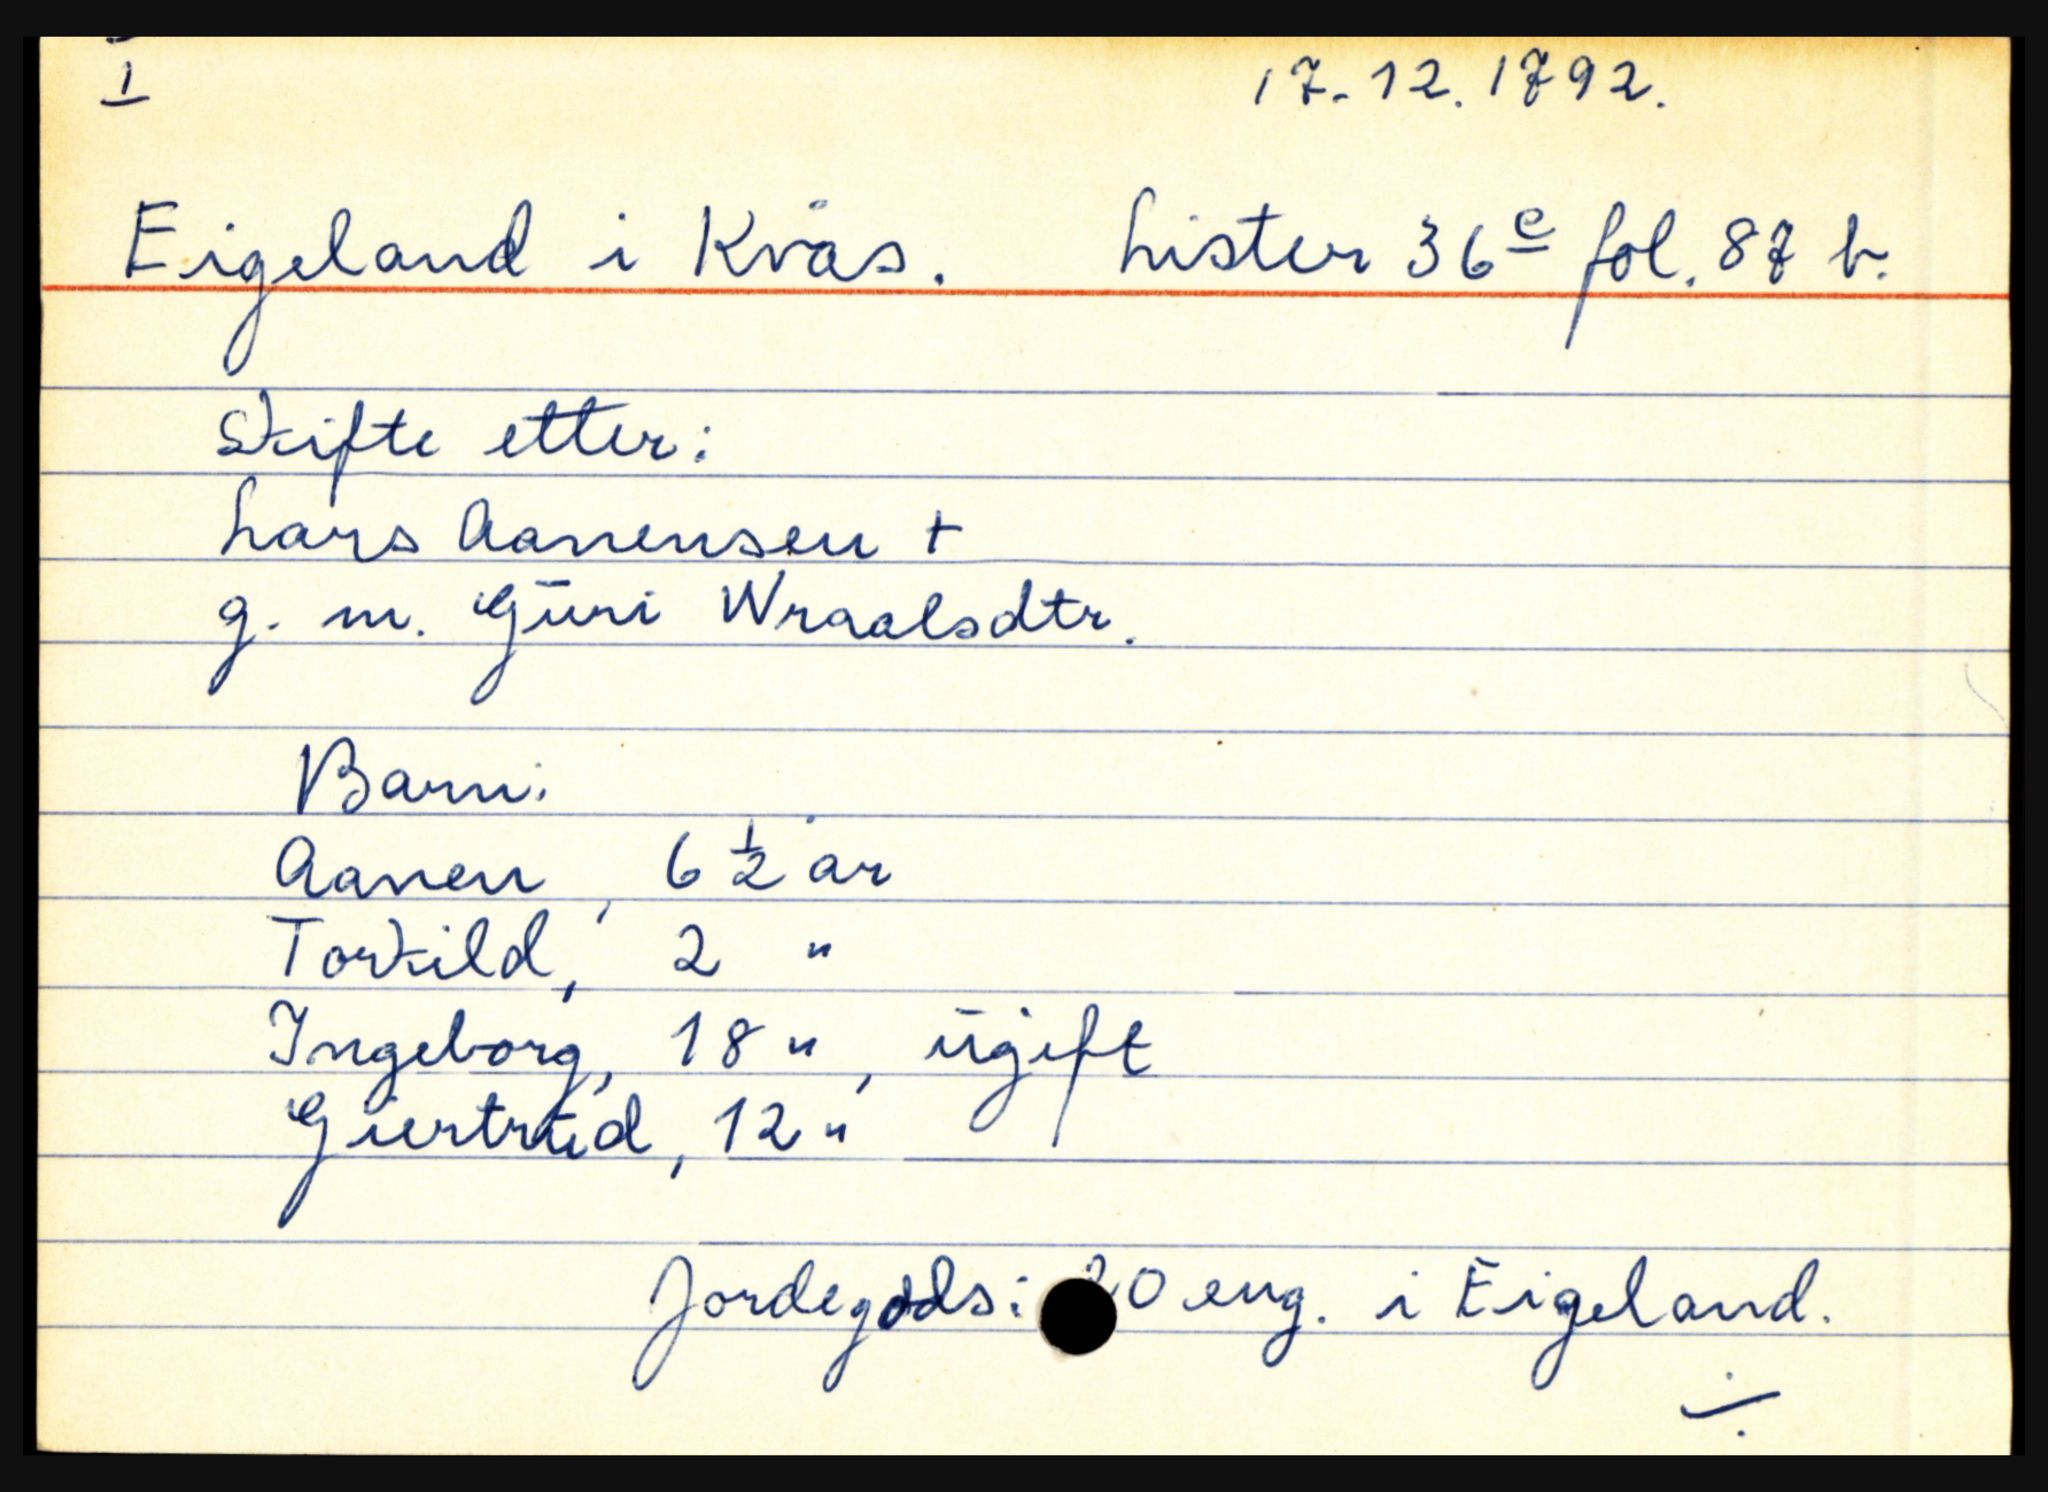 I
17.12.1792.
Eigeland i Kvås. Lister 36c fol. 87 b.
Skifte etter:
Lars Aanensen +
g. m. Guri Wraalsdtr.
Barn:
Aanen, 6 1/2 år
Torkild, 2 "
Ingeborg, 18 ", ugift
Giertrud, 12 "
Jordegods: 20 eng. i Eigeland.